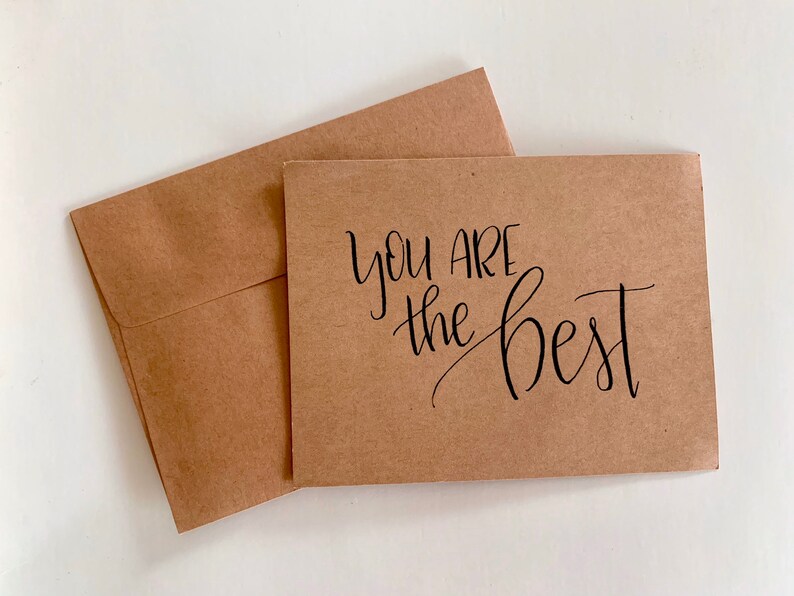 you ARE
the best